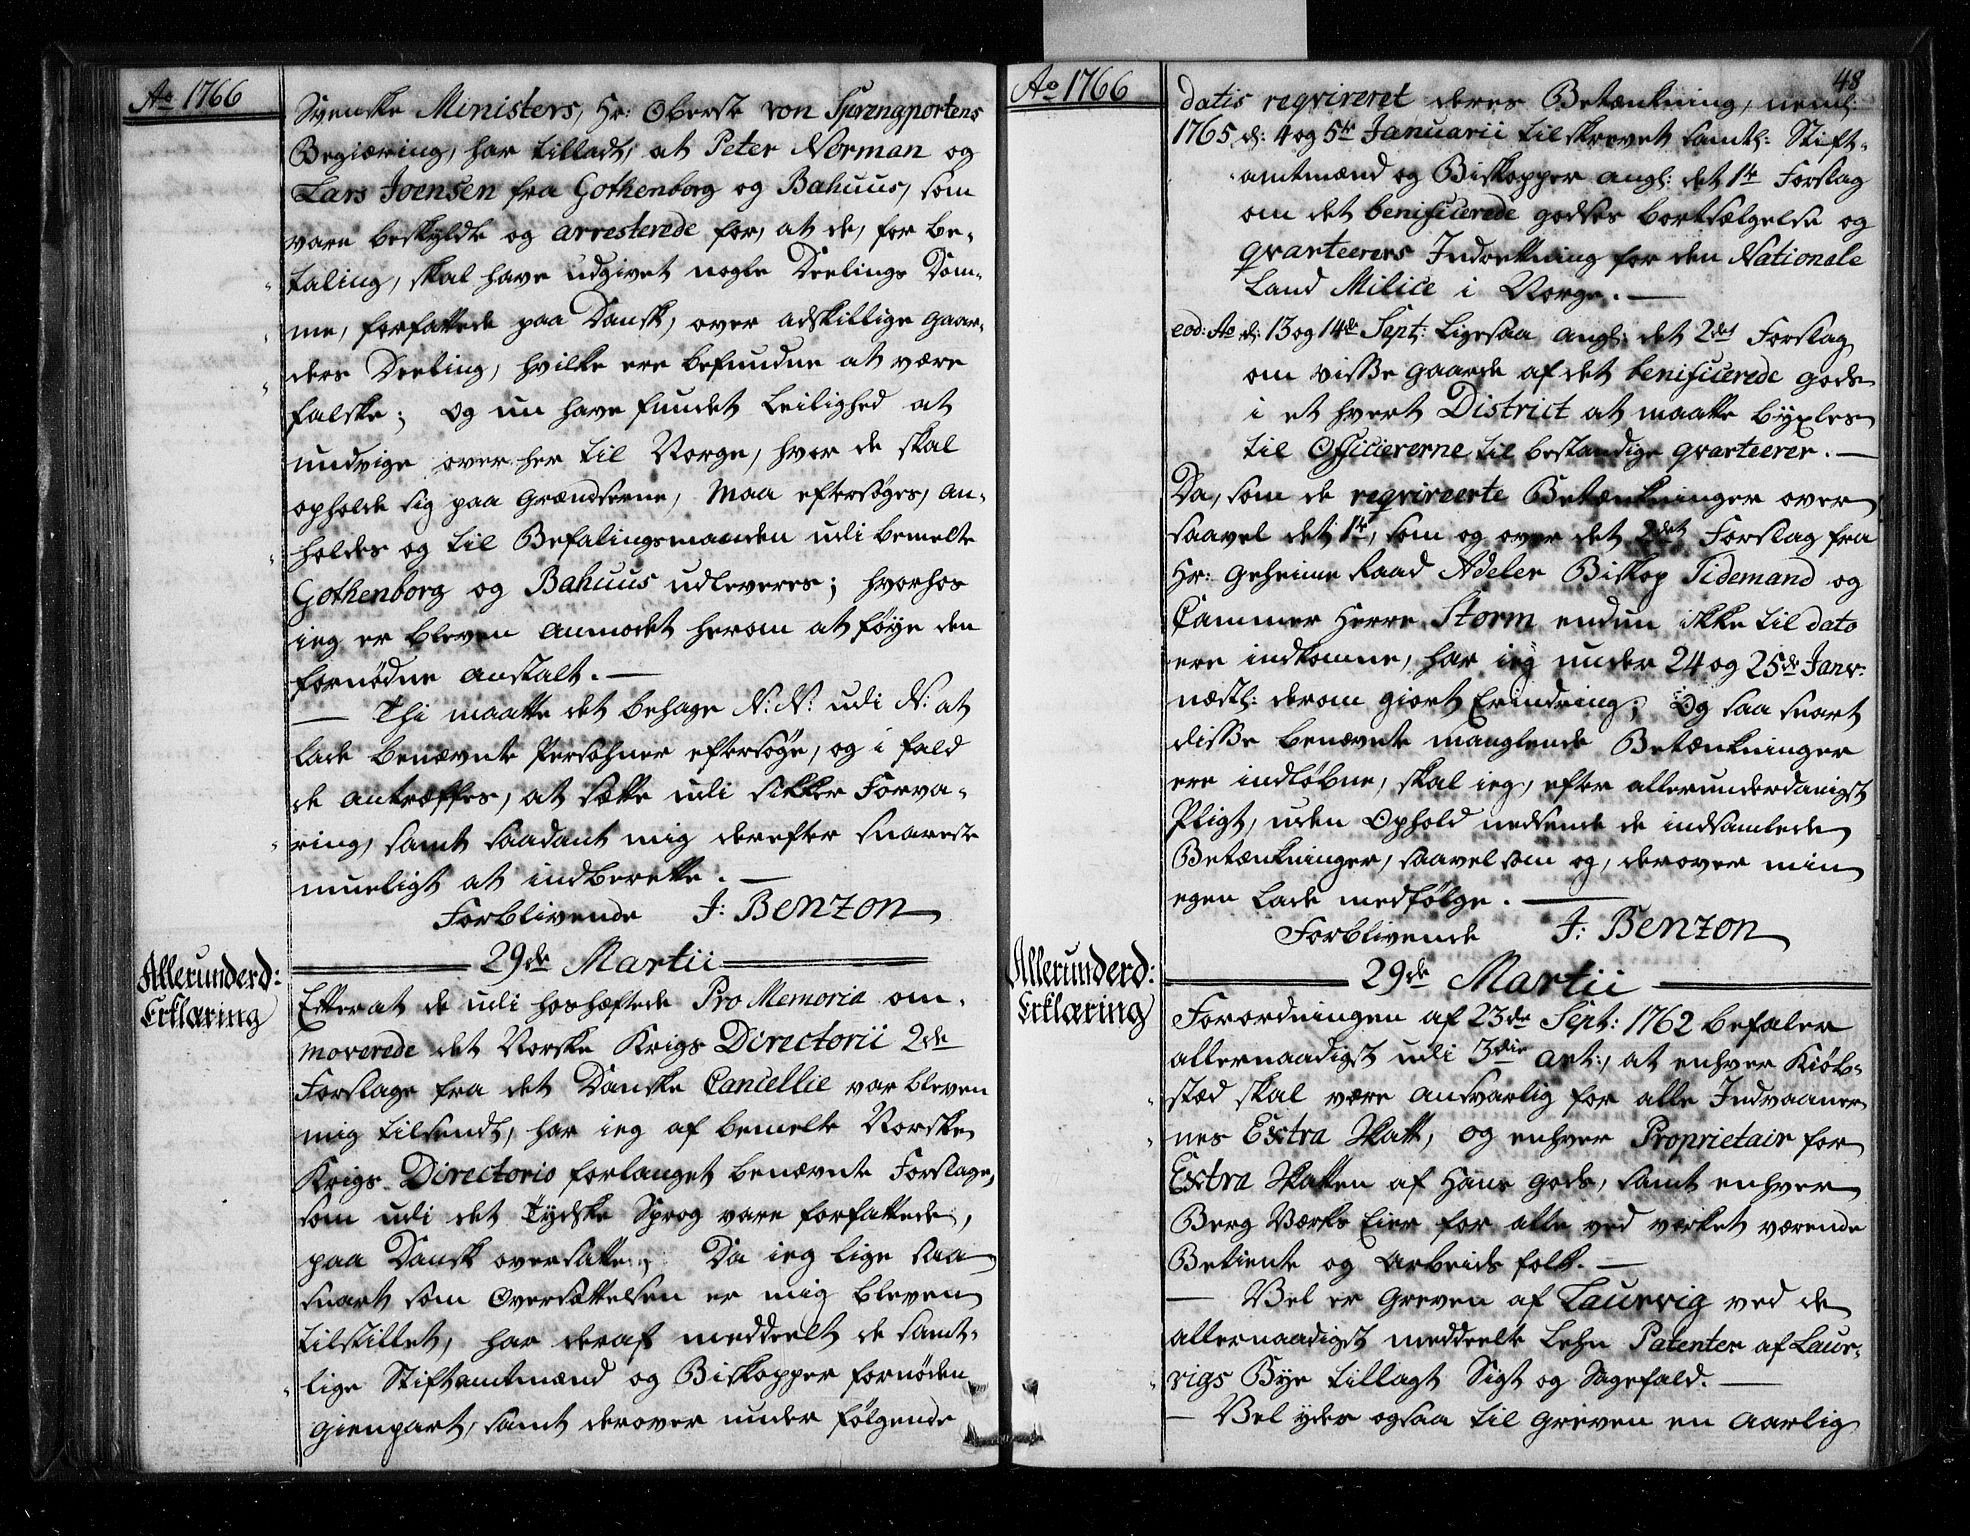 Ao 1766
Svenske Ministers, Hr: Oberst von Sprengportens
Begiæring, har tilladt, at Peter Norman og
Lars Joensen fra Gothenborg og Bahuus, som
vare beskyldte og arresterede for, at de, for be-
taling, skal have udgivet nogle Deelings Dom-
me, forfattede paa Dansk, over adskillige Gaar-
ders Deeling, hvilke ere befundne at være
falske; og nu have fundet Leilighed at
undvige over her til Norge, hvor de skal
opholde sig paa Grændserne, maa eftersøges, an-
holdes og til Befalingsmanden udi bemelte
Gothenborg og Bahuus udleveres; hvorhos
ieg er bleven anmodet herom at føye den
fornødne anstalt.
Thi maatte det behage N: N: udi N: at
lade benævnte Persohner eftersøge, og i fald
de antræffes, at sætte udi sikker Forva-
ring, samt saadant mig derefter snareste
mueligt at indberette.
Forblivende J: Benzon
29de Martii
Allerunderd:
Erklæring
Efterat de udi hoshæftede Pro Memoria om-
moverede det Norske Krigs Directorii 2de
Forslage fra det Danske Cancellie var bleven
mig tilsendt, har ieg af bemelte Norske
Krigs Directorio forlanget benævnte Forslage,
som udi det Tydske Sprog vare forfattede,
paa Dansk oversatte; Da ieg lige saa
snart som Oversættelsen er mig bleven
tilstillet, har deraf meddeelt de samt-
lige Stiftamtmænd og Biskopper fornøden
Gienpart, samt derover under følgende
Ao 1766
48
datis reqvireret deres Betænkning, neml:
1765 d: 4 og 5te Januarii tilskrevet samtl: Stift-
amtmænd og Biskopper angl: det 1te Forslag
om det benificerede Godses bortsælgelse og
qvarteerers Indretning for den Nationale
Land Milice i Norge.
eod: Ao d: 13 og 14de Sept: Ligesaa angl: det 2det Forslag
om visse Gaarde af det benificerede Gods
i et hvert District at maatte byxles
til Officiererne til bestandige qvarteerer.
Da, som de reqvireerte Betænkninger over
saavel det 1te, som og over det 2det Forslag fra
Hr: Geheime Raad Adeler Biskop Tidemand og
Cammer Herre Storm endnu ikke til dato
ere indkomne, har ieg under 24 og 25de Janv:
næstl: derom giort Erindring; Og saa snart
disse benævnte manglende Betænkninger
ere indløbne, skal ieg, efter allerunderdanigst
Pligt, uden Ophold nedsende de indsamlede
Betænkninger, saavelsom og, derover min
egen Lade medfølge.
Forblivende J: Benzon
29de Martii
Allerunderd:
Erklæring
Forordningen af 23de Sept: 1762 befaler
allernaadigst udi 3die art:, at enhver Kiøb-
stæd skal være ansvarlig for alle Indvaaner-
nes Extra Skatt, og enhver Proprietair for
Extra Skatten af Hans Gods, samt enhver
Berg Værks Eier for alle ved værket værende
Betiente og Arbeids folk.
Vel er Greven af Laurvig ved de
allernaadigst meddeelte Lehn Patenter af Laur-
vigs Bye tillagt Sigt og Sagefald.
Vel yder ogsaa til Greven en aarlig